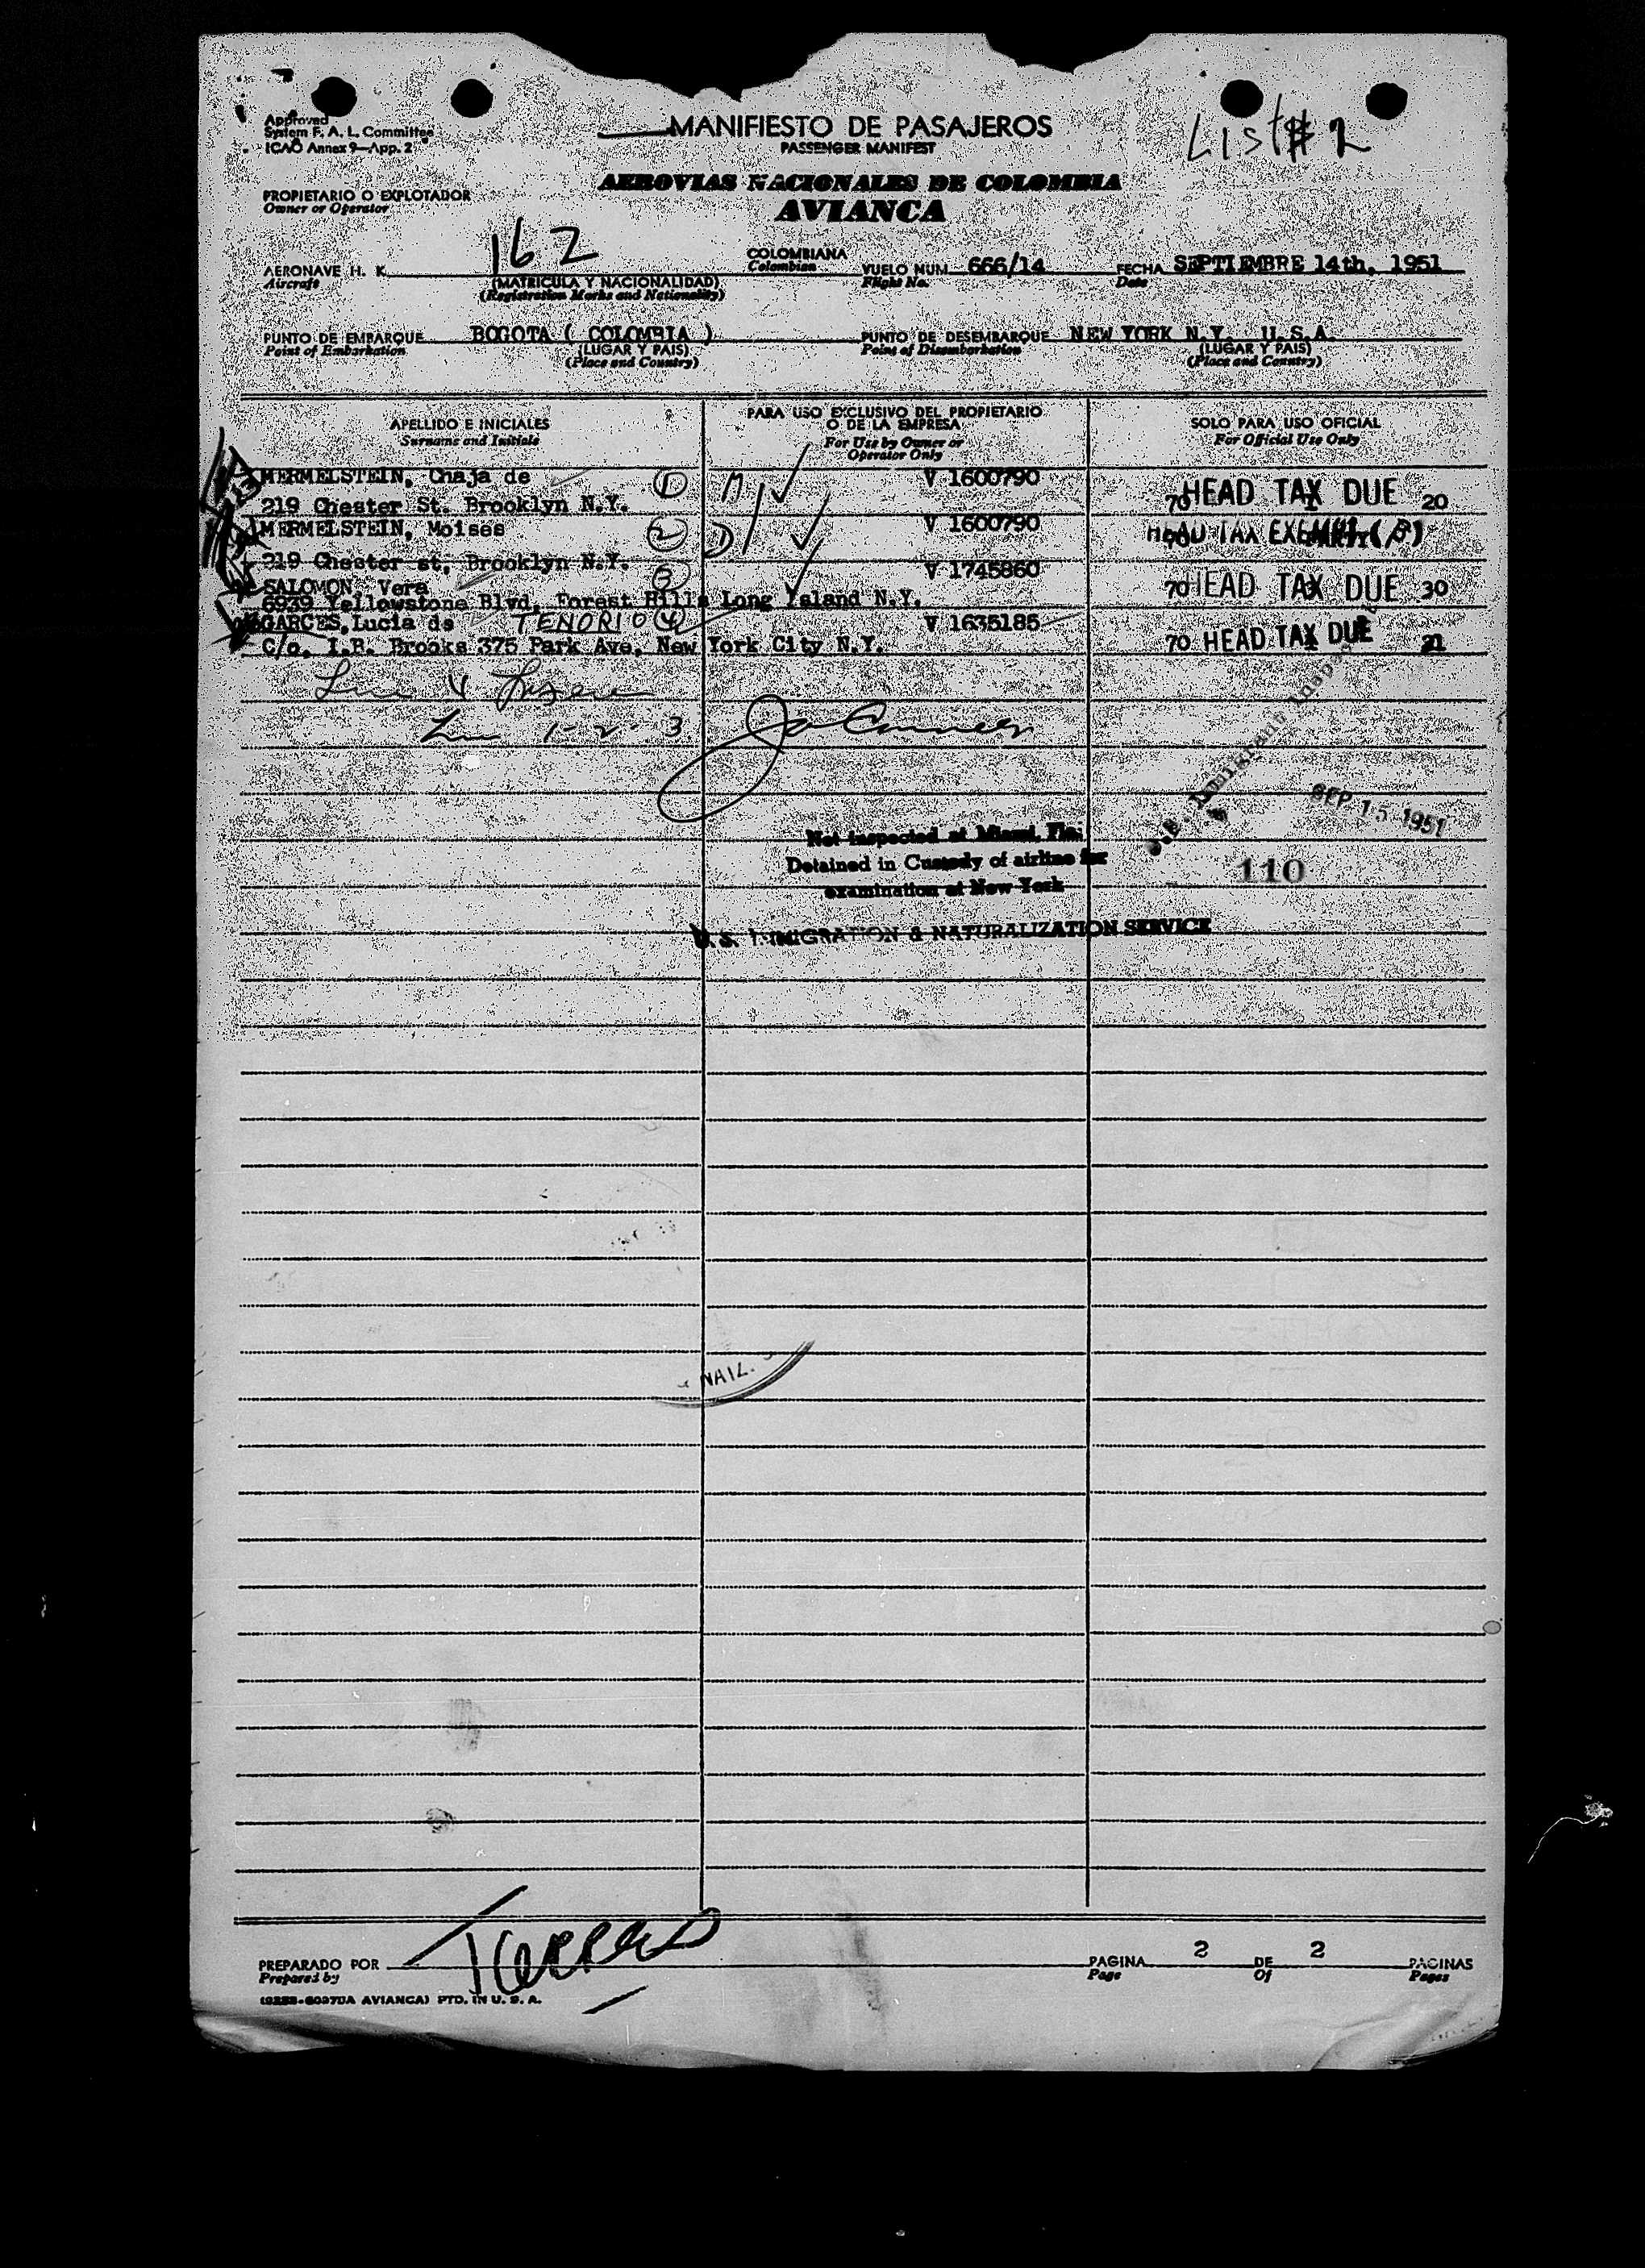 Approved
System F. A. L. Committee
ICAO Annex 9—App. 2
MANIFIESTO DE PASAJEROS
PASSENGER MANIFEST
List # 2
PROPIETARIO O EXPLOTADOR
Owner or Operator
AEROVIAS NACIONALES DE COLOMBIA
AVIANCA
AERONAVE H. K. 162 COLOMBIANA VUELO NUM 666/14 FECHA SEPTIEMBRE 14th, 1951
Aircraft Colombian Flight No. Date
(MATRICULA Y NACIONALIDAD)
(Registration Marks and Nationality)
PUNTO DE EMBARQUE BOGOTA ( COLOMBIA ) PUNTO DE DESEMBARQUE NEW YORK N.Y. U.S.A.
Point of Embarkation (LUGAR Y PAIS) Point of Disembarkation (LUGAR Y PAIS)
(Place and Country) (Place and Country)
APELLIDO E INICIALES
Surname and Initials
PARA USO EXCLUSIVO DEL PROPIETARIO
O DE LA EMPRESA
For Use by Owner or
Operator Only
SOLO PARA USO OFICIAL
For Official Use Only
MERMELSTEIN, Chaja de 1 V 1600790
219 Chester St. Brooklyn N.Y. 70 HEAD TAX DUE 20
MERMELSTEIN, Moises 2 D V 1600790 HEAD TAX EXEMPT
219 Chester st, Brooklyn N.Y.
SALOMON, Vera 3 V 1745860 70 HEAD TAX DUE 30
6939 Yellowstone Blvd, Forest Hills Long Island N.Y.
GARCES, Lucia de TENORIO 4 V 1635185
C/o. I.B. Brooks 375 Park Ave, New York City N.Y. 70 HEAD TAX DUE 21
1-2-3
U.S. Immigrant Inspector
SEP 15 1951
110
Not inspected at Miami, Fla.
Detained in Custody of airline for
examination at New York
U.S. IMMIGRATION & NATURALIZATION SERVICE
NAIL.
PREPARADO POR
Prepared by
PAGINA 2 DE 2 PAGINAS
Page Of Pages
AVIANCA) PTD. IN U. S. A.